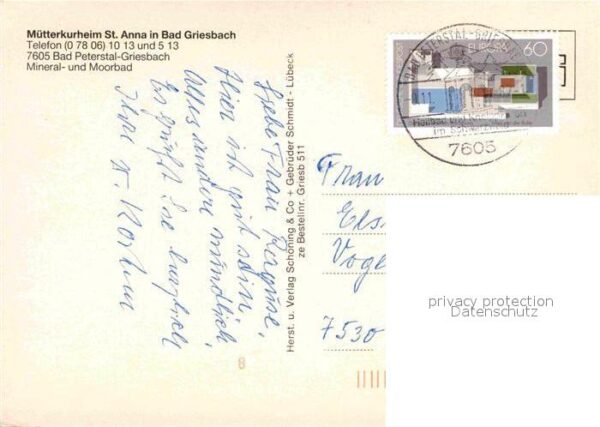 Mütterkurheim St. Anna in Bad Griesbach
Telefon (0 78 06) 10 13 und 5 13
7605 Bad Peterstal-Griesbach
Mineral- und Moorbad
Liebe Frau
Hier ist gut sein,
Alles andere mündlich
Es grüßt Sie herzlich
Ihre
Herst. u. Verlag Schöning & Co + Gebrüder Schmidt - Lübeck
ze Bestellnr. Griesb 511
EUROPA 60
7605
Frau
Els
Voge
7530
8
privacy protection
Datenschutz